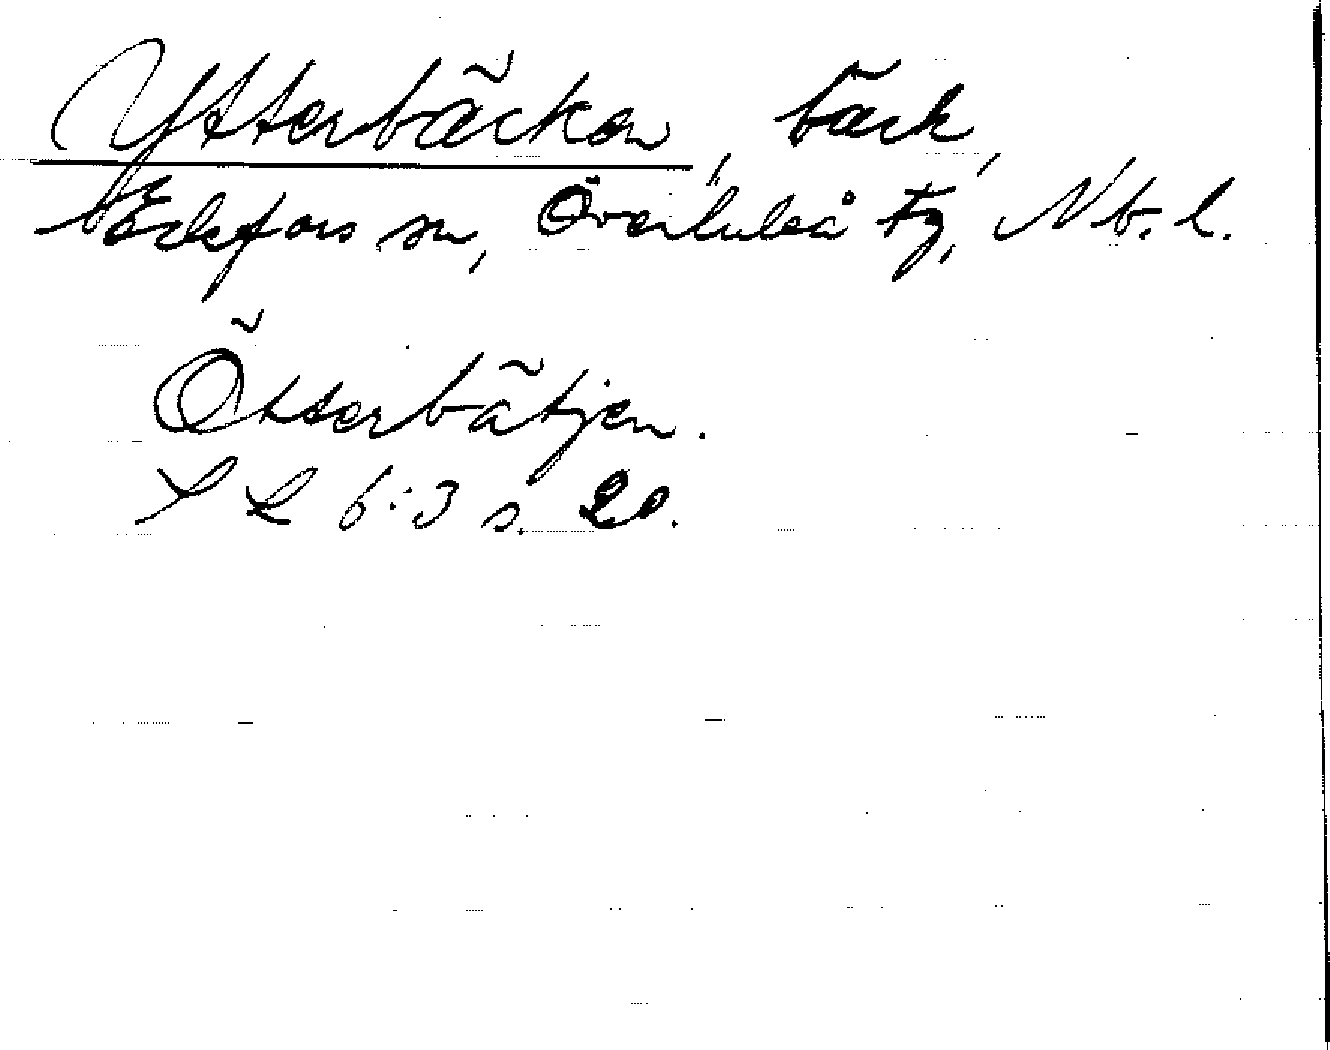 Ytterbäcken, bäck,
Edefors sn, Överluleå tg, Nb. l.
Ötterbätjen.
S L 6:3 s. 20.